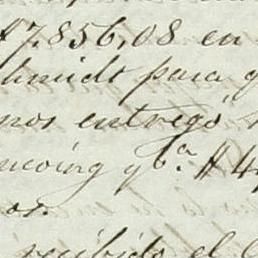 $7.856,08 en
chmidt para q
nos entregó
y Cª. $ 4
os.
recibido el